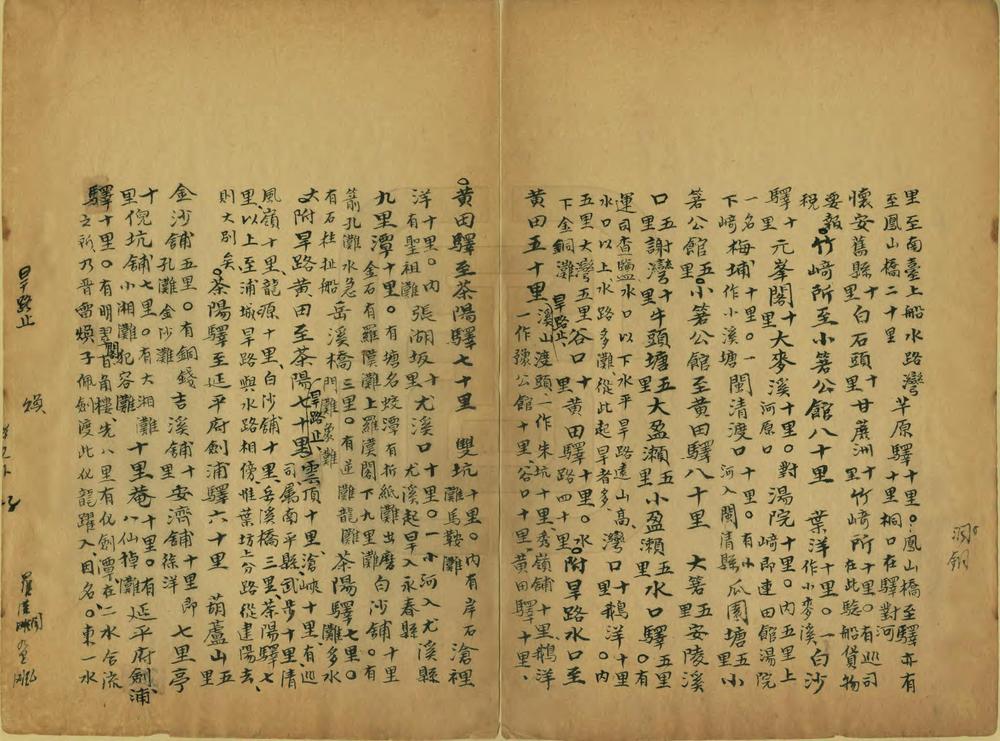 里至南臺上船水路灣 芋原驛十里。鳳山橋至驛亦有
至鳳山橋二十里 十里桐口在驛對河
懷安舊縣十里白石頭十里甘蔗洲十里竹崎所十里。有巡司在此驗船貨物
要報稅。竹崎所至小箬公館八十里 葉洋十里。一作小麥溪白沙
驛十里元峯閣十里大麥溪十里。對河原口湯院十里。內五里上崎即連田館湯院
一名梅埔十里。一作小溪塘閩清渡口十里。有小河入閩清縣瓜園塘五里小
下崎
箬公館五里。小箬公館至黃田驛八十里 大箬五里安陵溪
口五里謝灣十里牛頭塘五里大盈瀨五里小盈瀨五里水口驛五里。有
運司查鹽水口以下水平旱路遠山高、灣口十里鵝洋十里
水口以上水路多灘從此起旱者多、
五里大灣五里谷口十里黃田驛十里。水路四十里。附旱路水口至
下金銅灘
黃田五十里 旱路止 溪山渡頭、一作朱坑十里、秀嶺鋪十里、鵝洋
一作豫公館十里谷口十里黃田驛十里、
。黃田驛至茶陽驛七十里 雙坑十里。內有岸石滄裡
灘馬鞍灘
洋十里。內有聖祖灘張湖坂十里尤溪口十里。一小河入尤溪縣
尤溪起旱入永春縣
九里潭十里。有塘名蛟灣有折紙灘出磨白沙鋪十里。有
金石有羅漢灘上羅漢閣下九里灘
箭孔灘水急岳溪橋三里。有延灘龍門灘象灘茶陽驛七里。灘多水
有石柱扯船
大附旱路黃田至茶陽七十里 旱路止 雲頂十里、滄峽十里、有巡
司屬南平縣武步十里清
風嶺十里、龍源十里、白沙鋪十里、岳溪橋三里茶陽驛七
里、以上至浦城旱路與水路相傍、惟葉坊上分路從建陽去、
則大別矣。茶陽驛至延平府劍浦驛六十里 葫蘆山五里
金沙鋪五里。有銅錢吉溪鋪十里安濟鋪十里即徐洋七里亭
孔灘金沙灘
十里倪坑鋪七里。有大湘灘十里菴十里。有八仙掉灘延平府劍浦
小湘灘犯容灘
驛十里。有明翠閣晋角樓、先八里有化劍潭在二水合流
之所乃晋雷煥子佩劍渡此化龍躍入、因名。東一水
洞
銅
旱路止
煥
閣